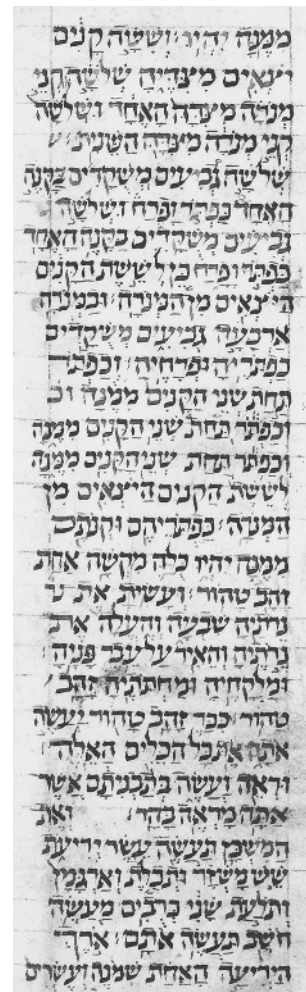 ממנה יהיו׃ וששה קנים
יצאים מצדיה שלשה קני
מנרה מצדה האחד ושלשה
קני מנרה מצדה השנית׃
שלשה גביעים משקדים בקנה
האחד כפתר ופרח ושלשה
גביעים משקדים בקנה האחד
כפתר ופרח כן לששת הקנים
היצאים מן המנרה׃ ובמנרה
ארבעה גביעים משקדים
כפתריה ופרחיה׃ וכפתר
תחת שני הקנים ממנה וכ
וכפתר תחת שני הקנים ממנה
וכפתר תחת שני הקנים ממנה
לששת הקנים היצאים מן
המנרה׃ כפתריהם וקנתם
ממנה יהיו כלה מקשה אחת
זהב טהור׃ ועשית את נר
נרתיה שבעה והעלה את
נרתיה והאיר על עבר פניה׃
ומלקחיה ומחתתיה זהב
טהור׃ ככר זהב טהור יעשה
אתה את כל הכלים האלה׃
וראה ועשה בתבניתם אשר
אתה מראה בהר׃ ואת
המשכן תעשה עשר יריעת
שש משזר ותכלת וארגמן
ותלעת שני כרבים מעשה
חשב תעשה אתם׃ ארך
היריעה האחת שמנה ועשרים